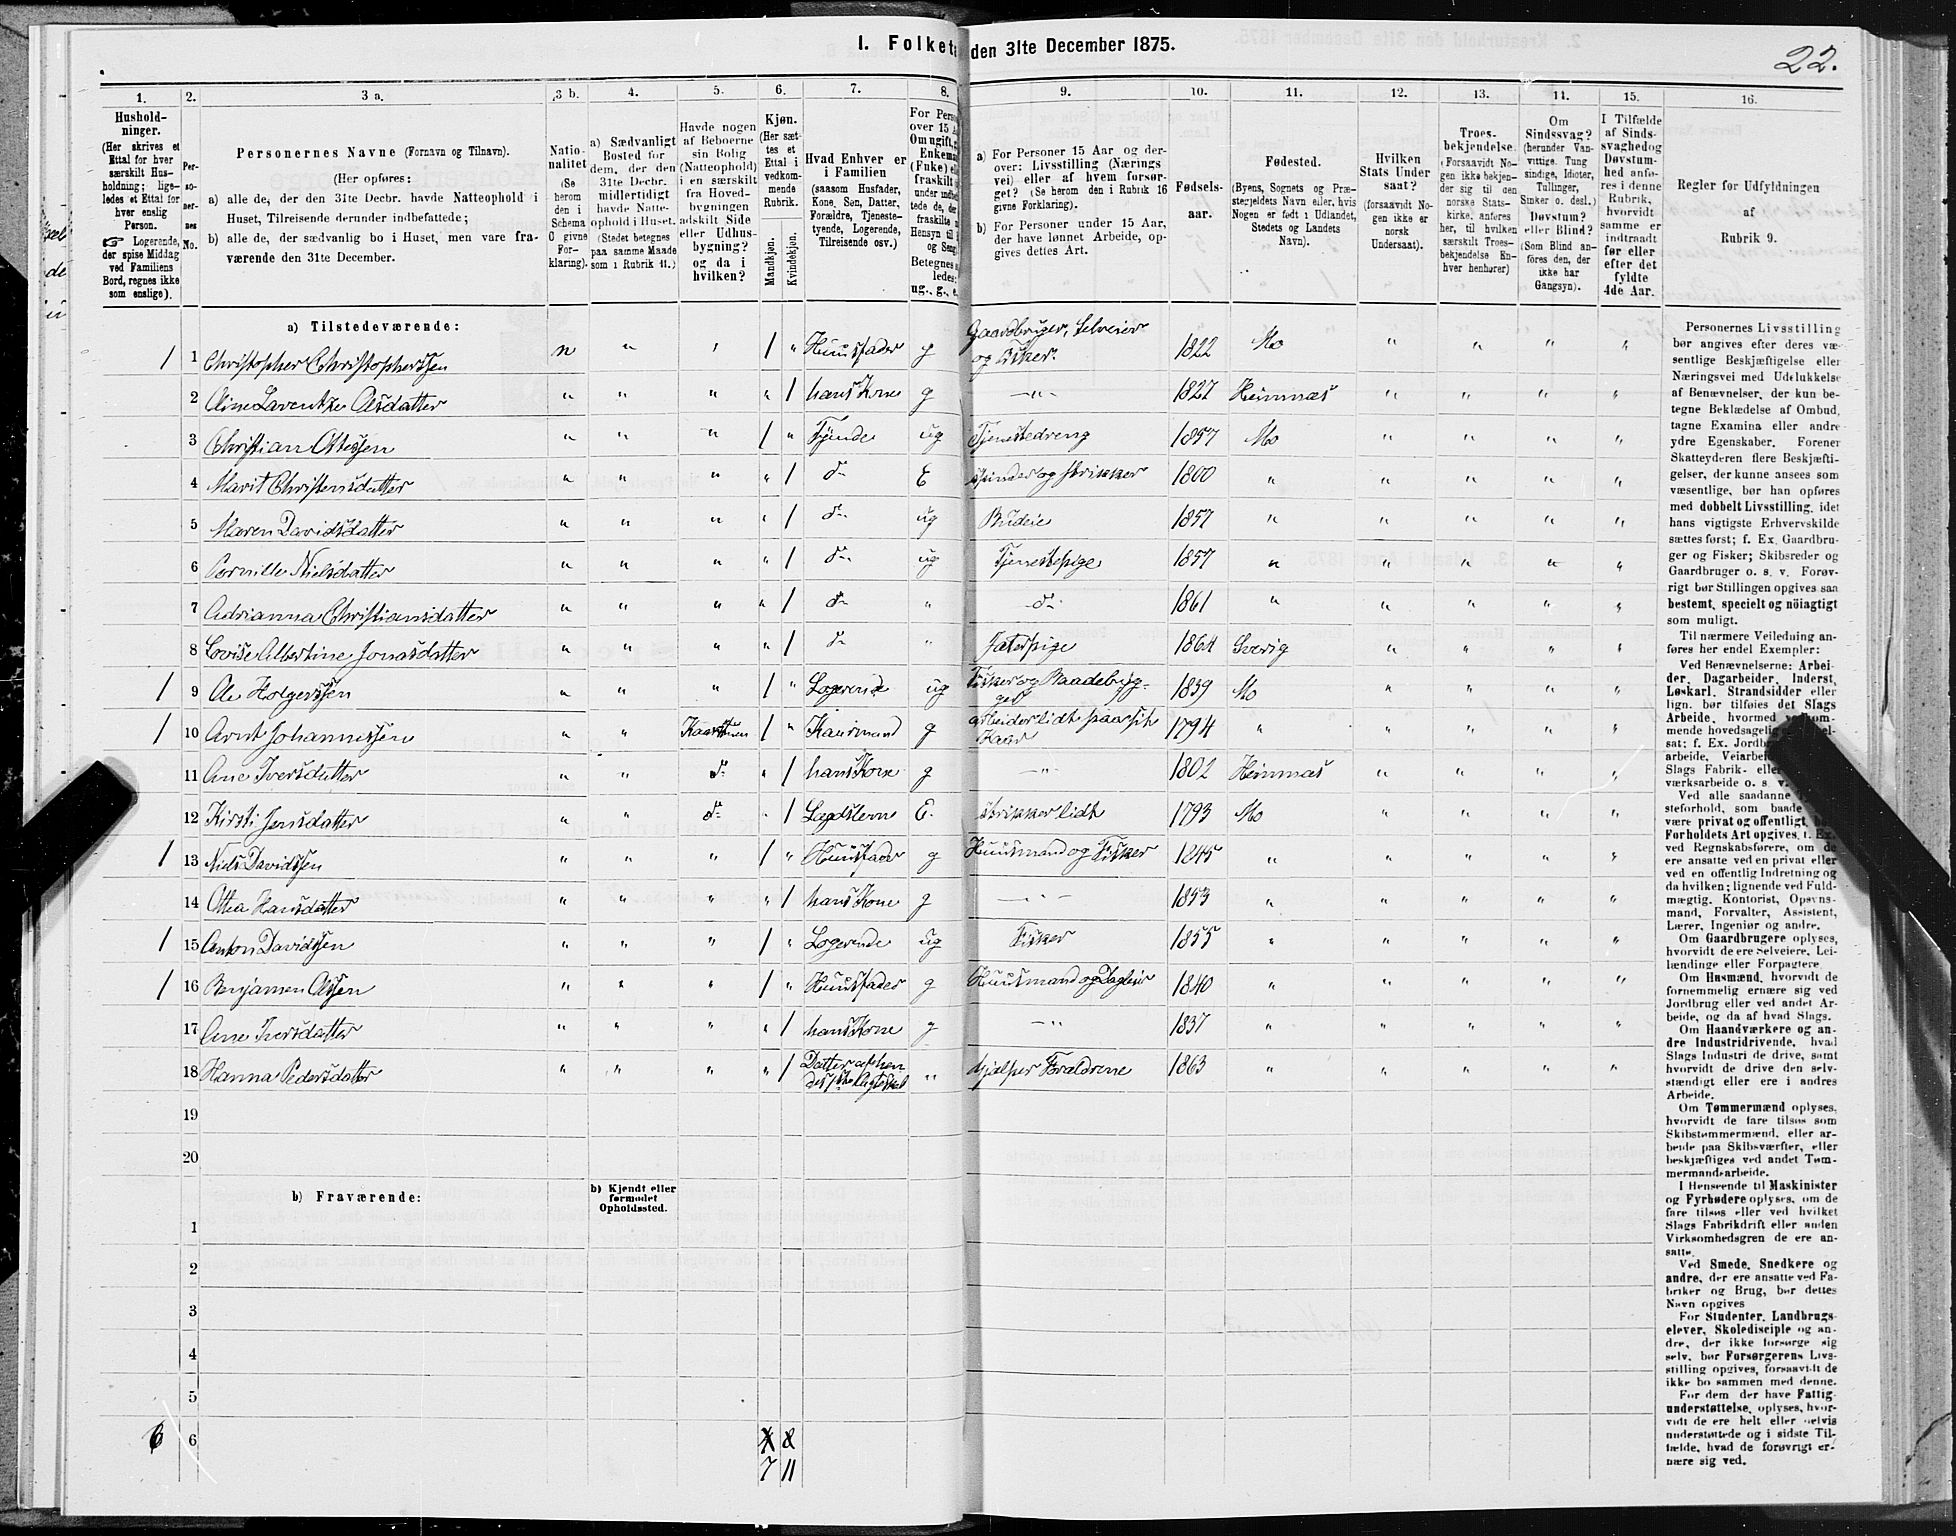 1. Folket
den 31te December 1875.
22.
1.
Hushold-
ninger.
(Her skrives et
Ettal for hver
særskilt Hus-
holdning; lige-
ledes et Ettal for
hver enslig
Person.
☞ Logerende,
der spise Middag
ved Familiens
Bord, regnes ikke
som enslige).
2.
Per-
so-
ner-
nes
No.
3 a.
Personernes Navne (Fornavn og Tilnavn).
(Her opføres:
a) alle de, der den 31te Decbr. havde Natteophold i
Huset, Tilreisende derunder indbefattede;
b) alle de, der sædvanlig bo i Huset, men vare fra-
værende den 31te December.
3 b.
Natio-
nalitet
(Se
herom
den i
Schema
C givne
For-
klaring).
4.
a) Sædvanligt
Bosted for
dem, der den
31te Decbr.
midlertidigt
havde Natte-
ophold i Huset.
(Stedet betegnes
paa samme Maade
som i Rubrik 11.)
5.
Havde nogen
af Beboerne
sin Bolig
(Natteophold)
i en særskilt
fra Hoved-
bygningen
adskilt Side
eller Udhus-
bygning?
og da i
hvilken?
6.
Kjøn.
(Her sæt-
tes et
Ettal i
vedkom-
mende
Rubrik.
Mandkjøn.
Kvindekjøn.
7.
Hvad Enhver er
i Familien
(saasom Husfader,
Kone, Søn, Datter,
Forældre, Tjeneste-
tyende, Logerende,
Tilreisende osv.)
8.
For Perso
over 15 A
Om ugift, g
Enkema
(Enke) el
fraskilt
ug., g., e.
9.
a) For Personer 15 Aar og der-
over: Livsstilling (Nærings
vei) eller af hvem forsør-
get? (Se herom den i Rubrik 16
givne Forklaring).
b) For Personer under 15 Aar,
der have lønnet Arbeide, op-
gives dettes Art.
10.
Fødsels-
aar.
11.
Fødested.
(Byens, Sognets og Præ-
stegjeldets Navn eller, hvis
Nogen er født i Udlandet,
Stedets og Landets
Navn).
12.
Hvilken
Stats Under
saat?
(forsaavidt No-
gen ikke er
norsk
Undersaat).
13.
Troes-
bekjendelse.
(Forsaavidt No-
gen ikke bekjen-
der sig til den
norske Stats-
kirke, anføres
her, til hvilken
særskilt Troes-
bekjendelse En-
hver henhører)
14.
Om
Sindssvag?
(herunder Van-
vittige, Tung
sindige, Idioter,
Tullinger,
Sinker o. desl.)
Døvstum?
eller Blind?
(Som Blind an-
føres den, der
ikke har
Gangsyn).
15.
I Tilfælde
af Sinds-
svaghed og
Døvstum-
hed anfø-
res i denne
Rubrik,
hvorvidt
samme er
indtraadt
før eller
efter det
fyldte
4de Aar.
16.
Regler for Udfyldningen
af
Rubrik 9.
a) Tilstedeværende:
1 1 Christopher Christopherssen n " " 1 " Huusfader g Gaardbruger, Selveier
og Fisker. 1822 Mo " " " "
2 Oline Larentze Olsdatter " " " " 1 hans Kone g — " — 1827 Hemnæs " " " "
3 Christian Ottessen " " " 1 " Tjende ug Tjenestedreng 1857 Mo " " " "
4 Marit Christensdatter " " " " 1 d— E Spinder og strikker 1800 " " " " "
5 Maren Davidsdatter " " " " 1 d— ug Budeie 1857 " " " " "
6 Pernille Nielsdatter " " " " 1 d— ug Tjenestepige 1857 " " " " "
7 Adrianna Christiansdatter " " " " 1 d— " —d— 1861 " " " " "
8 Lovise Albertine Jonasdatter " " " " 1 d— " Jæterpige 1864 Sverig " " " "
1 9 Ole Holgerssen " " " 1 " Logerende ug Fisker og Baadebyg-
get 1839 Mo " " " "
1 10 Arnt Johannessen " " Kaarstuen 1 " Kaarmand g arbeider lidt paa sit
Kaar 1794 " " " " "
11 Ane Iversdatter " " d— " 1 hans Kone g — " — 1802 Hemnæs " " " "
12 Kirsti Jensdatter " " d— " 1 Lægdslem E. strikker lidt 1793 Mo " " " "
1 13 Niels Davidssen " " " 1 " Huusfader g Huusmand og Fisker 1245 " " " " "
14 Othea Hansdatter " " " " 1 hans Kone g — " — 1853 " " " " "
1 15 Anton Davidssen " " " 1 " Logerende ug Fisker 1855 " " " " "
1 16 Benjamen Olssen " " " 1 " Huusfader g Huusmand og Dagleier 1840 " " " " "
17 Ane Iversdatter " " " " 1 hans Kone g — " — 1837 " " " " "
18 Hanna Pedersdatter " " " " 1 Datter af hen
des Ægteskab " hjælper Forældrene 1863 " " " " "
19
20
b) Fraværende:
b) Kjendt eller
formodet
Opholdssted.
1
2
3
4
5
6 6 8
7 11
Personernes Livsstilling
bør angives efter deres væ-
sentlige Beskjæftigelse eller
Næringsvei med Udelukkelse
af Benævnelser, der kun be-
tegne Beklædelse af Ombud,
tagne Examina eller andre
ydre Egenskaber. Forener
Skatteyderen flere Beskjæfti-
gelser, der kunne ansees som
væsentlige, bør han opføres
med dobbelt Livsstilling, idet
hans vigtigste Erhvervskilde
sættes først; f. Ex. Gaardbru-
ger og Fisker; Skibsreder og
Gaardbruger o. s. v. Forøv-
rigt bør Stillingen opgives saa
bestemt, specielt og nöiagtigt
som muligt.
Til nærmere Veiledning an-
føres her endel Exempler:
Ved Benævnelserne: Arbei-
der, Dagarbeider, Inderst,
Løskarl, Strandsidder eller
lign. bør tilføies det Slags
Arbeide, hvormed
mende hovedsagelig
sat; f. Ex. Jordbr
arbeide, Veiarbei
Slags Fabrik- elle
værksarbeide o. s. v.
Ved alle saadanne
steforhold, som baade
være privat og offentligt, bør
Forholdets Art opgives, t. Ex.
ved Regnskabsførere, om de
ere ansatte ved en privat eller
ved en offentlig Indretning og
da hvilken; lignende ved Fuld-
mægtig, Kontorist, Opsyns-
mand, Forvalter, Assistent,
Lærer, Ingeniør og andre.
Om Gaardbrugere oplyses,
hvorvidt de ere Selveiere, Lei-
lændinge eller Forpagtere.
Om Husmænd, hvorvidt de
fornemmelig ernære sig ved
Jordbrug eller ved andet Ar-
beide, og da af hvad Slags.
Om Haandværkere og an-
dre Industridrivende, hvad
Slags Industri de drive, samt
hvorvidt de drive den selv-
stændigt eller ere i andres
Arbeide.
Om Tømmermænd oplyses,
hvorvidt de fare tilsøs som
Skibstømmermænd, eller ar-
beide paa Skibsværfter, eller
beskjæftiges ved andet Tøm-
mermandsarbeide.
I Henseende til Maskinister
og Fyrbødere oplyses, om de
fare tilsøs eller ved hvilket
Slags Fabrikdrift eller anden
Virksomhedsgren de ere an-
satte.
Ved Smede, Snedkere og
andre, der ere ansatte ved Fa-
briker og Brug, bør dettes
Navn opgives
For Studenter, Landbrugs-
elever, Skoledisciple og an-
dre, der ikke forsørge sig
selv, bør Forsørgerens Livs-
stilling opgives, forsaavidt de
ikke bo sammen med denne.
For dem der have Fattig-
understøttelse, oplyses, hvor-
vidt de ere helt eller delvis
understøttede og i sidste Til-
fælde, hvad de forøvrigt er-
nære sig ved.